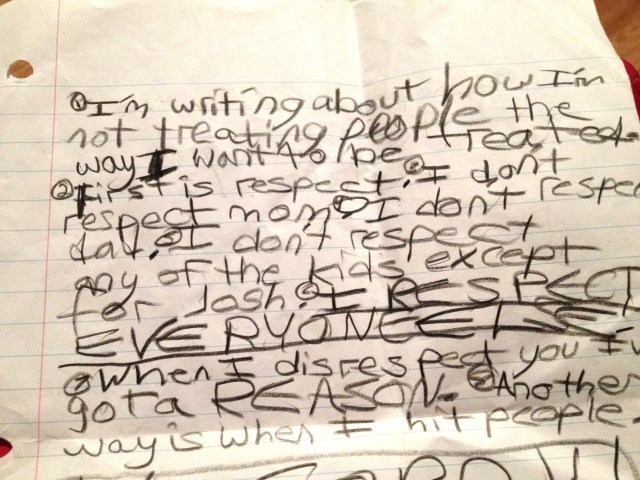 ①I'm writing about how I'm
not treating people the
way I want to be treated.
②First is respect. ③I don't
respect mom. I don't respec
dad. I don't respect
any of the kids except
for Josh. I RESPECT
EVERYONE ELSE
When I disrespect you I'v
got a REASON. Another
way is when I hit people.